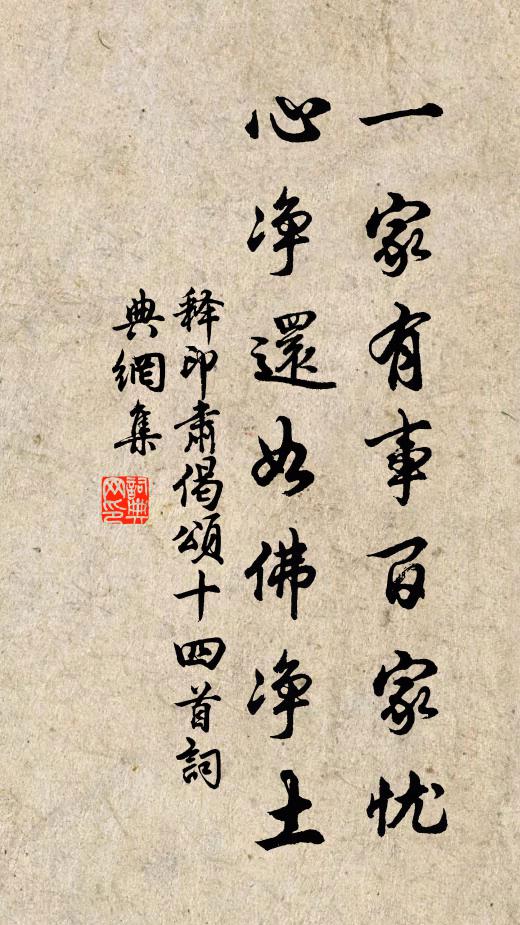 一家有事百家忧
心净還如佛净土
释印肃偈頌十四首詞
典網集
詞典
网印